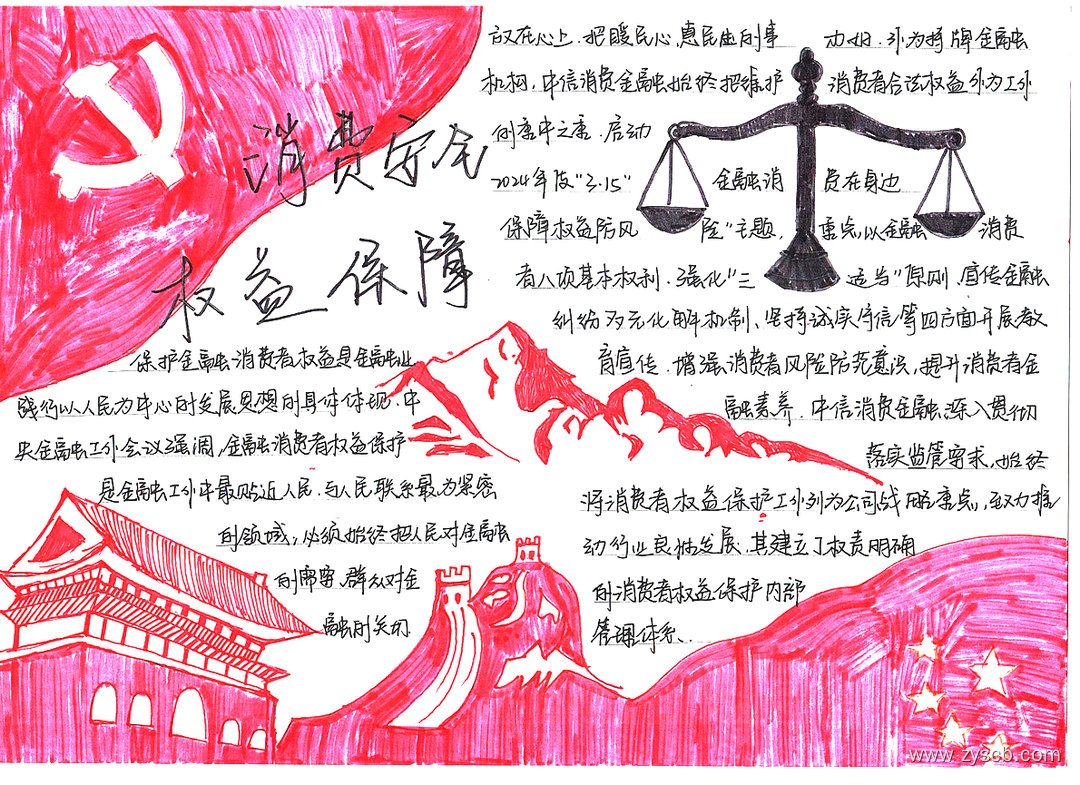 消费安全
权益保障
保护金融消费者权益是金融业
践行以人民为中心的发展思想的具体体现.中
央金融工作会议强调,金融消费者权益保护
是金融工作中最贴近人民.与人民联系最为紧密
的领域,必须始终把人民对金融
的需要.群众对金
融的关切.
放在心上.把暖民心.惠民生的事 办好.作为持牌金融
机构,中信消费金融始终把维护 消费者合法权益作为工作
的重中之重.启动
2024年度"3.15" 金融消 费在身边
保障权益防风 险"主题, 重点以金融 消费
者八项基本权利.强化"三 适当"原则.宣传金融
纠纷多元化解机制、坚持诚实守信等四方面开展教
育宣传.增强消费者风险防范意识,提升消费者金
融素养.中信消费金融深入贯彻
落实监管要求,始终
将消费者权益保护工作列为公司战略重点,致力推
动行业良性发展.其建立了权责明确
的消费者权益保护内部
管理体系.
www.zyscb.com